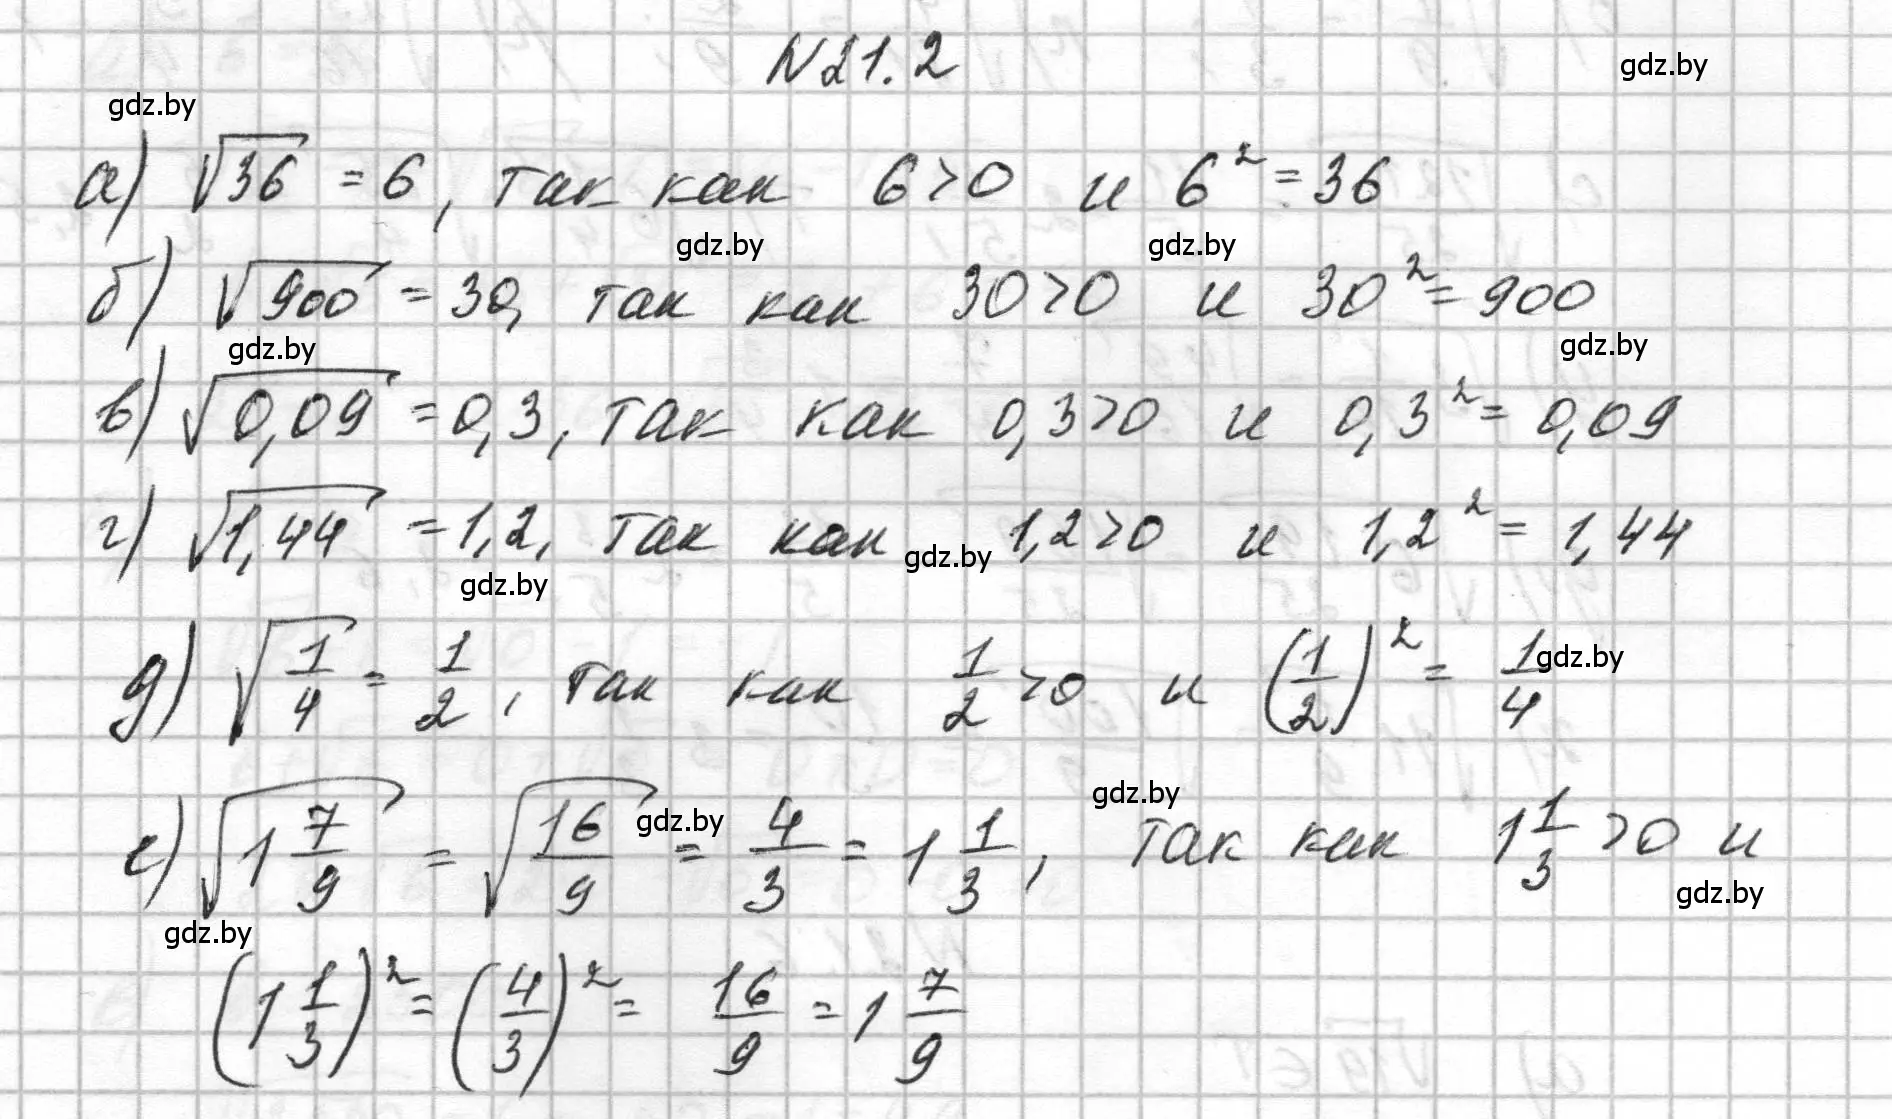 N21.2
gdz.by
gdz.by
а) √36 = 6, так как 6>0 и 6² = 36
gdz.by gdz.by
б) √900 = 30, так как 30>0 и 30² = 900
gdz.by gdz.by
в) √0,09 = 0,3, так как 0,3>0 и 0,3² = 0,09
г) √1,44 = 1,2, так как 1,2>0 и 1,2² = 1,44
gdz.by gdz.by
д) √1/4 = 1/2, так как 1/2>0 и (1/2)² = 1/4
gdz.by
gdz.by gdz.by
е) √1 7/9 = √16/9 = 4/3 = 1 1/3, так как 1 1/3>0 и
gdz.by gdz.by
(1 1/3)² = (4/3)² = 16/9 = 1 7/9